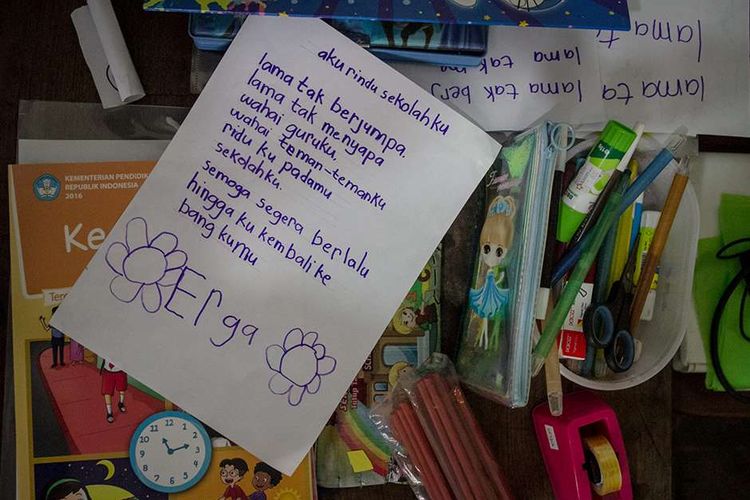 aku rindu sekolahku
lama tak berjumpa.
lama tak menyapa
wahai guruku,
wahai teman-temanku
ridu ku padamu
sekolahku.
semoga segera berlalu
hingga ku kembali ke
bang kumu
Erga
KEMENTERIAN PENDIDIK
REPUBLIK INDONESIA
2016
Ke
Ter
lama ta
lama tak
lama ta
lama tak berj